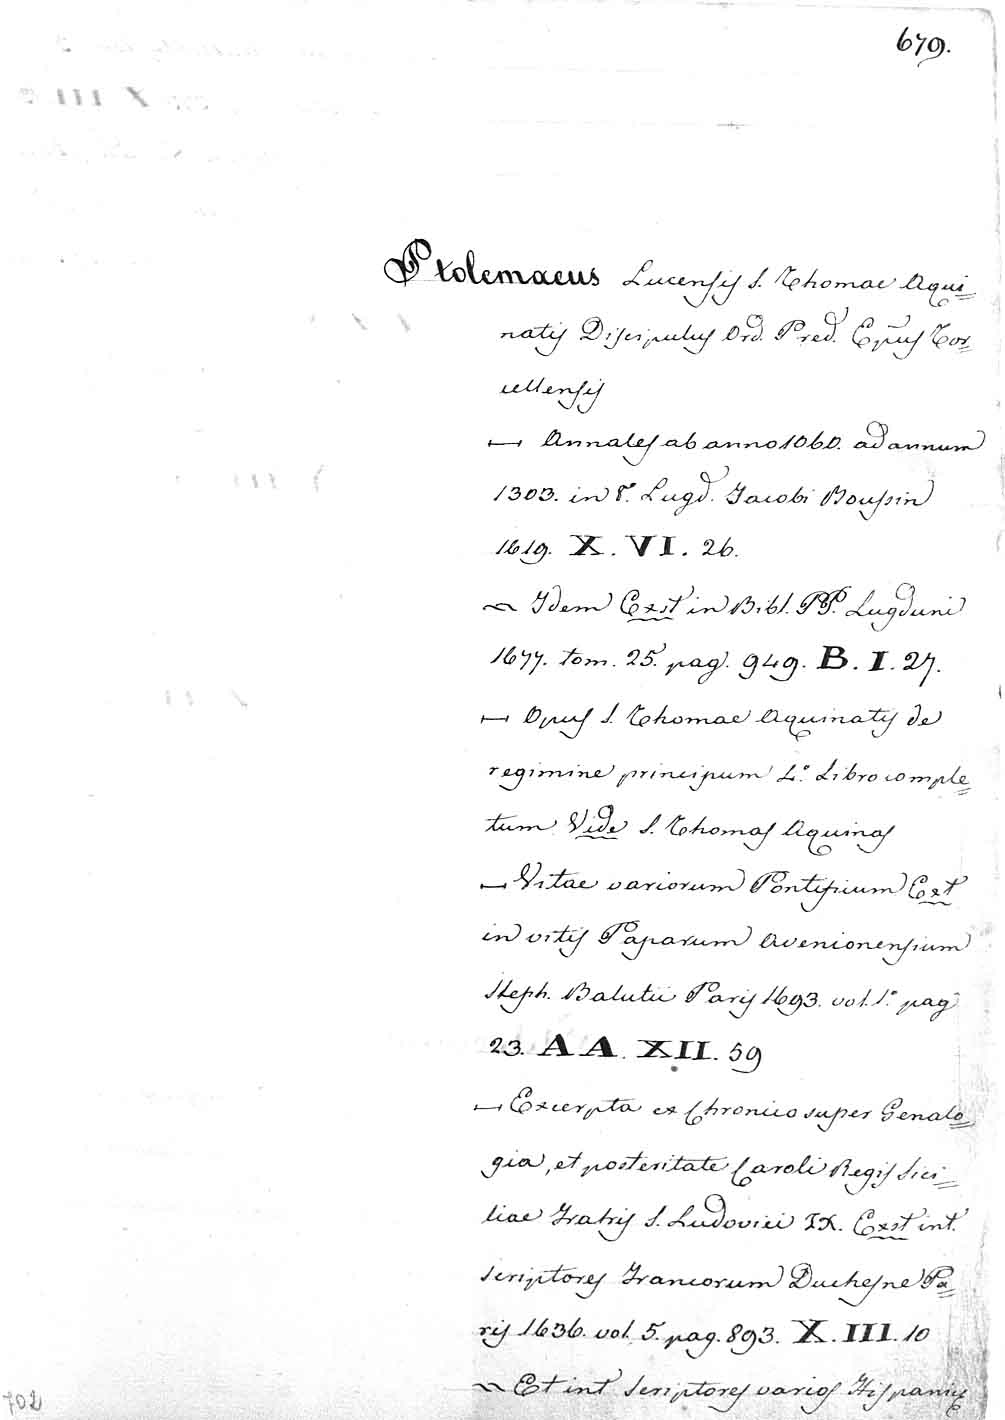 679.
Ptolemaeus Lucensis S. Thomae Aqui=
natis Discipulus Ord. Pred. Epus Tor=
cellensis
— Annales ab anno 1060. ad annum
1303. in 8.° Lugd. Jacobi Roussin
1619. X. VI. 26.
~ Idem Exst in Bibl. PP. Lugduni
1677. tom. 25. pag. 949. B. I. 27.
— Opus S. Thomae Aquinatis de
regimine principum 4.° Libro comple=
tum Vide S. Thomas Aquinas
— Vitae variorum Pontificum Ext
in vitis Paparum Avenionensium
Steph. Balutii Paris 1693. vol. 1.° pag
23. AA. XII. 59
— Excerpta ex Chronico super Genalo=
gia, et posteritate Caroli Regis Sici=
liae Fratris S. Ludovici IX. Exst int.
scriptores Francorum Duchesne Pa=
ris 1636. vol. 5. pag. 893. X. III. 10
~ Et int scriptores varios Hispanies
702